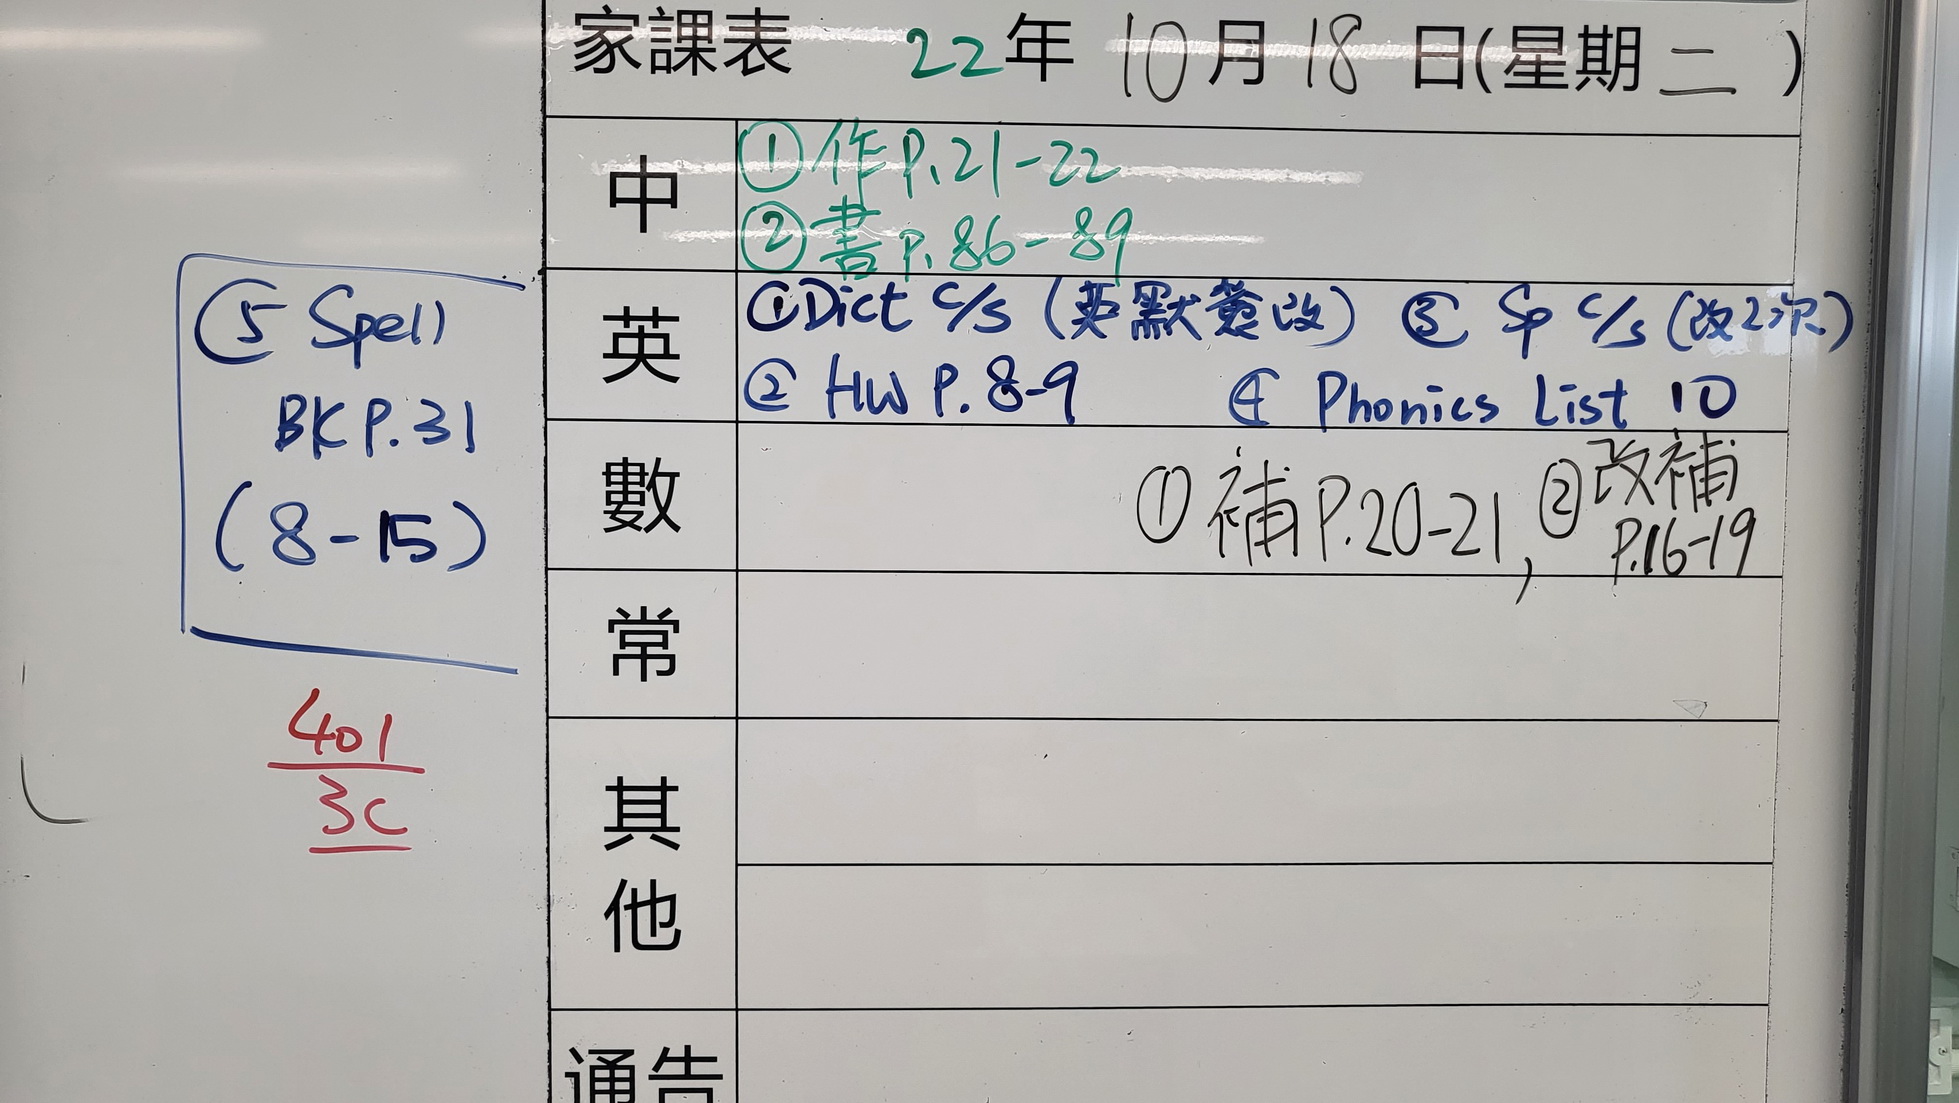 家課表 22年 10月 18 日(星期 二 )
中
① 作 P.21-22
② 書 P.86-89
英
① Dict c/s (英默簽改) ③ Sp c/s (改2次)
② HW P. 8-9 ④ Phonics List 10
⑤ Spell
BK P.31
(8-15)
數
① 補 P.20-21, ② 改補
P.16-19
常
401
3C
其他
通告